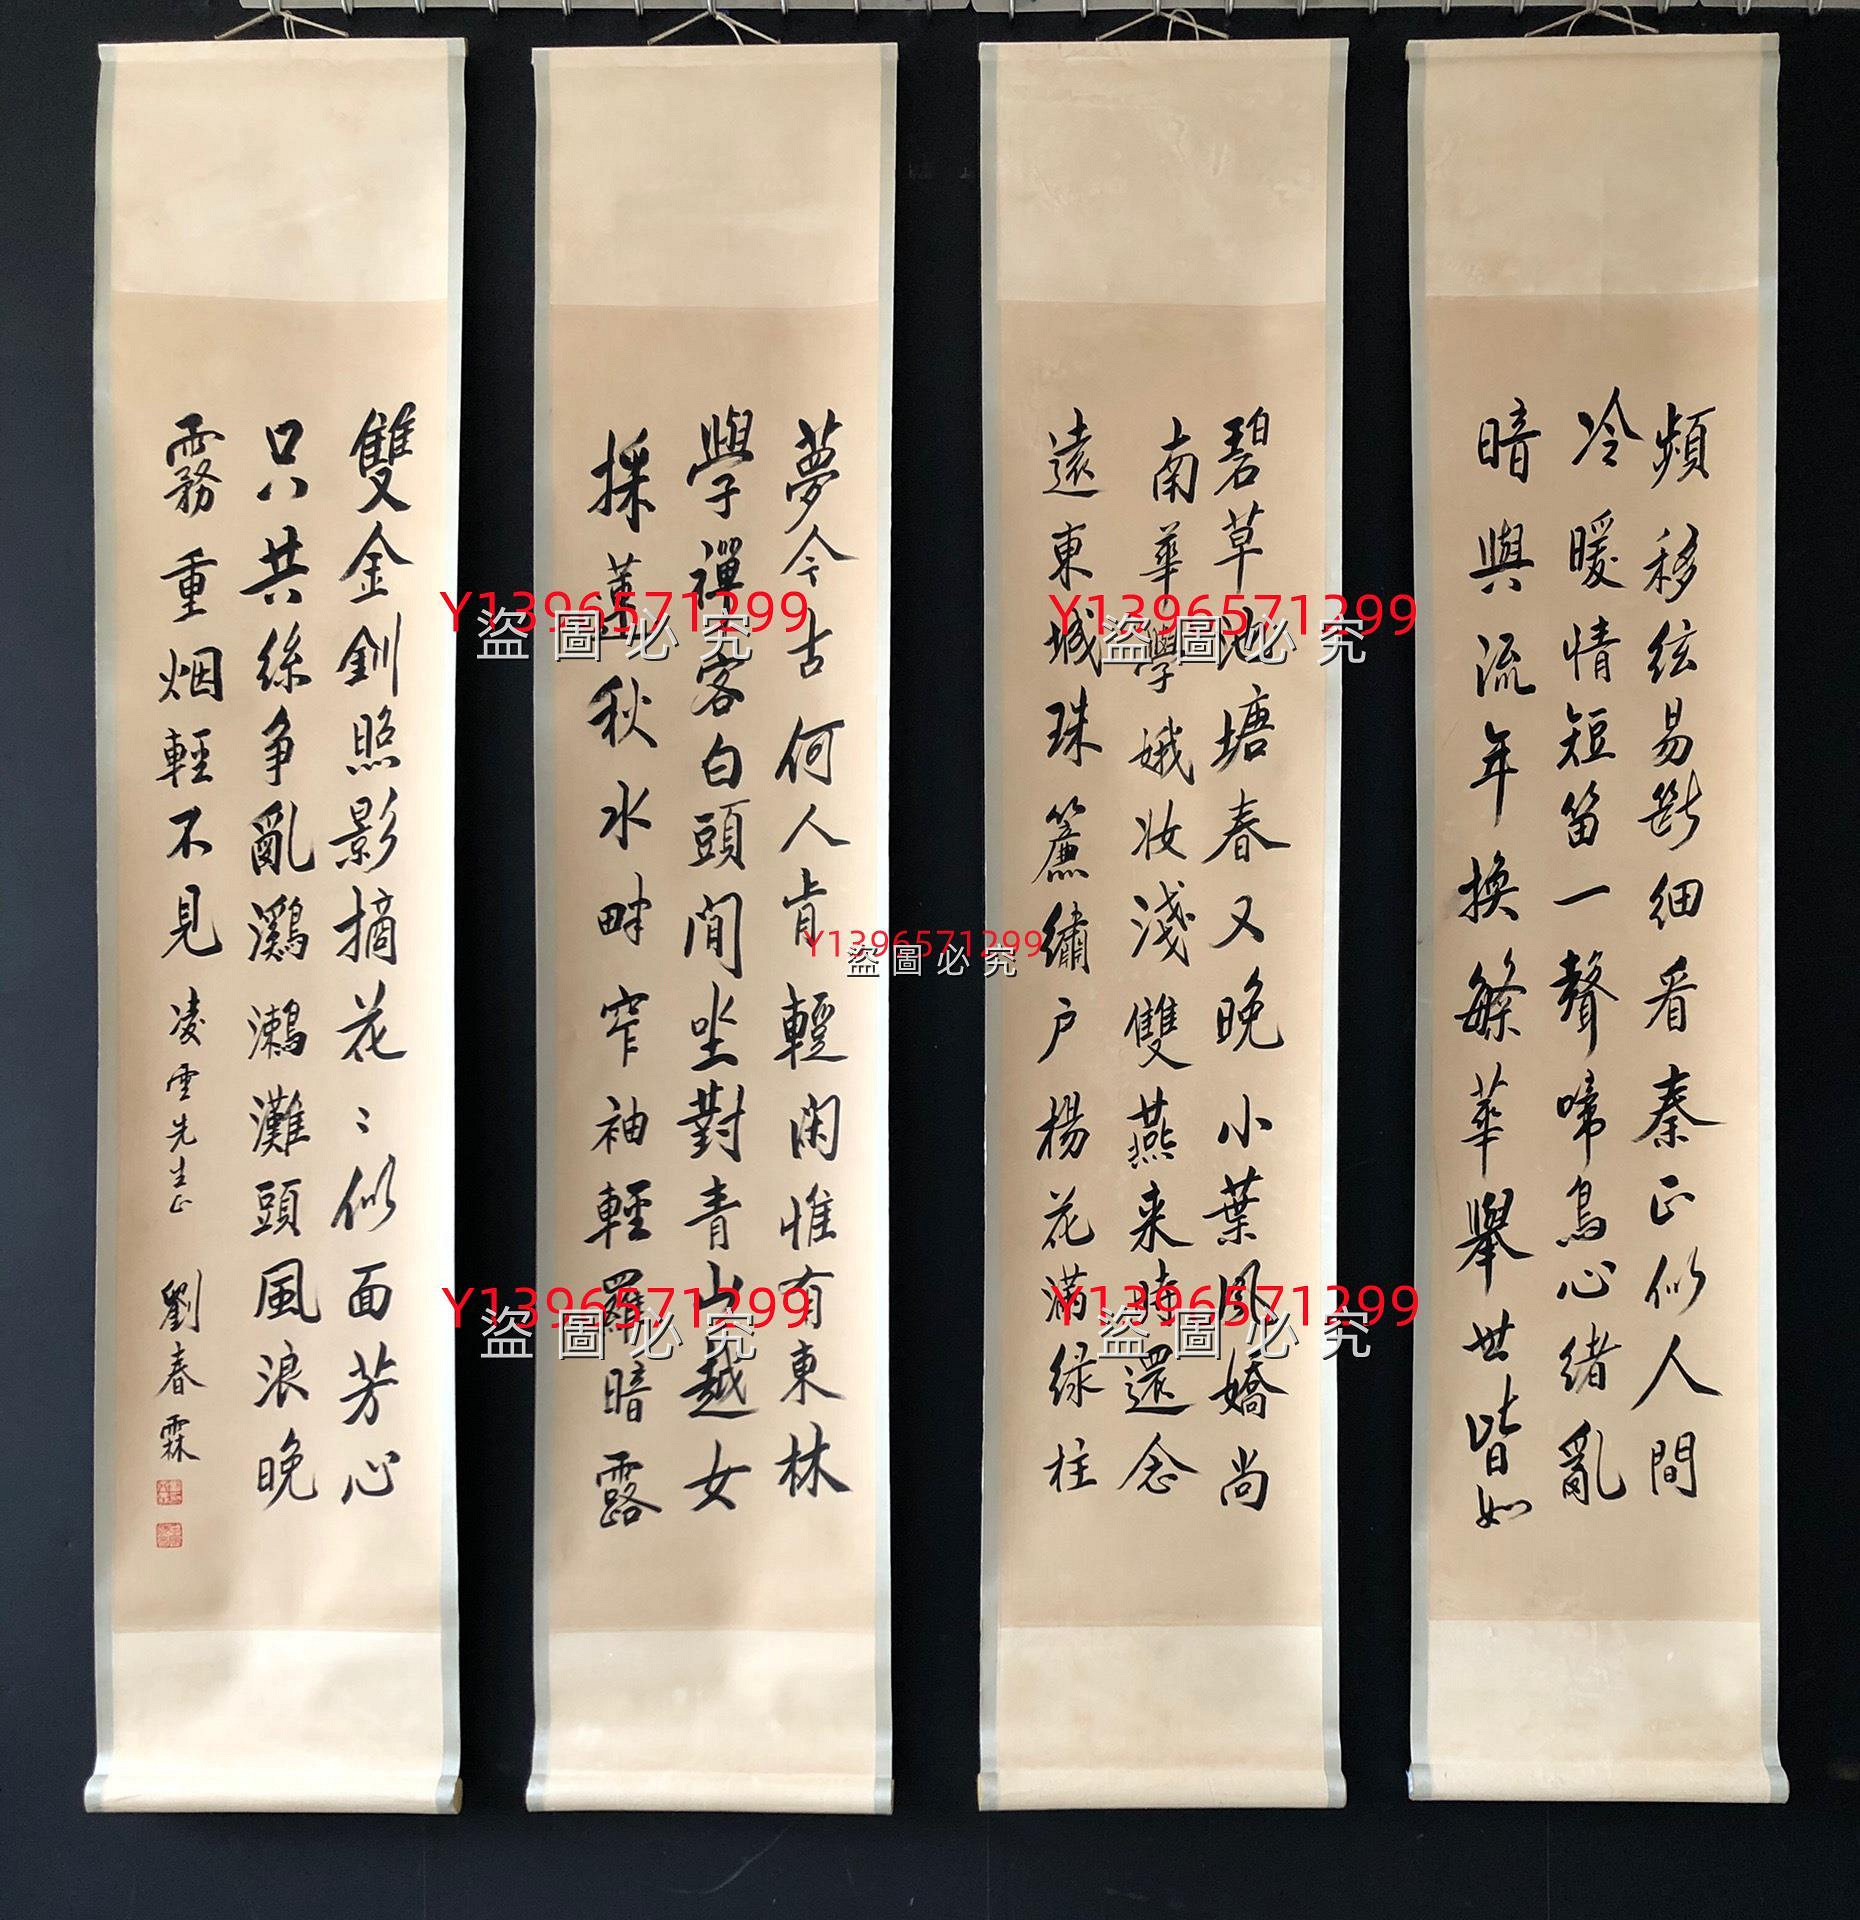 頻移絃易斷細看秦正似人間
冷暖情短笛一聲啼鳥心緒亂
暗與流年換繁華舉世皆如
碧草池塘春又晚小葉風嬌尚
南華學娥妝淺雙燕來時還念
遠東城珠簾繡戶楊花滿綠柱
夢今古何人肯輕閑惟有東林
學禪客白頭閒坐對青山越女
採蓮秋水畔窄袖輕羅暗露
雙金釧照影摘花〻似面芳心
只共絲爭亂鸂鶒灘頭風浪晚
霧重烟輕不見
凌雲先生正
劉春霖
Y1396571299
盜圖必究
Y1396571299
盜圖必究
Y1396571299
盜圖必究
Y1396571299
盜圖必究
Y1396571299
盜圖必究